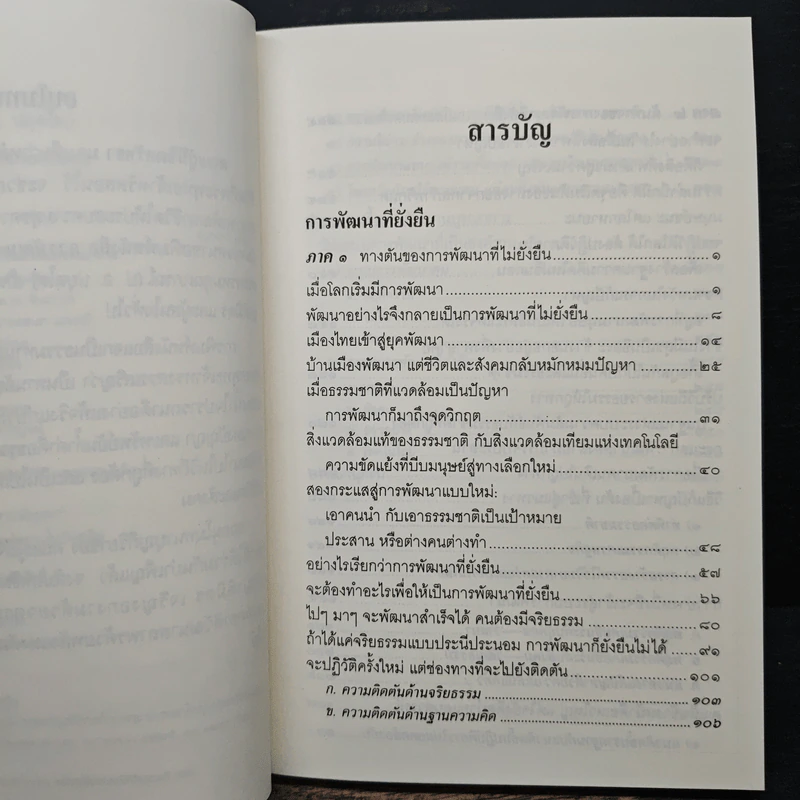 สารบัญ
การพัฒนาที่ยั่งยืน
ภาค ๑ ทางตันของการพัฒนาที่ไม่ยั่งยืน ๑
เมื่อโลกเริ่มมีการพัฒนา ๑
พัฒนาอย่างไรจึงกลายเป็นการพัฒนาที่ไม่ยั่งยืน ๘
เมืองไทยเข้าสู่ยุคพัฒนา ๑๔
บ้านเมืองพัฒนา แต่ชีวิตและสังคมกลับหมักหมมปัญหา ๒๕
เมื่อธรรมชาติที่แวดล้อมเป็นปัญหา
การพัฒนาก็มาถึงจุดวิกฤต ๓๑
สิ่งแวดล้อมแท้ของธรรมชาติ กับสิ่งแวดล้อมเทียมแห่งเทคโนโลยี
ความขัดแย้งที่บีบมนุษย์สู่ทางเลือกใหม่ ๔๐
สองกระแสสู่การพัฒนาแบบใหม่:
เอาคนนำ กับเอาธรรมชาติเป็นเป้าหมาย
ประสาน หรือต่างคนต่างทำ ๔๘
อย่างไรเรียกว่าการพัฒนาที่ยั่งยืน ๕๗
จะต้องทำอะไรเพื่อให้เป็นการพัฒนาที่ยั่งยืน ๖๖
ไปๆ มาๆ จะพัฒนาสำเร็จได้ คนต้องมีจริยธรรม ๘๐
ถ้าได้แค่จริยธรรมแบบประนีประนอม การพัฒนาก็ยั่งยืนไม่ได้ ๙๑
จะปฏิวัติครั้งใหม่ แต่ช่องทางที่จะไปยังติดตัน ๑๐๑
ก. ความติดตันด้านจริยธรรม ๑๐๓
ข. ความติดตันด้านฐานความคิด ๑๐๖